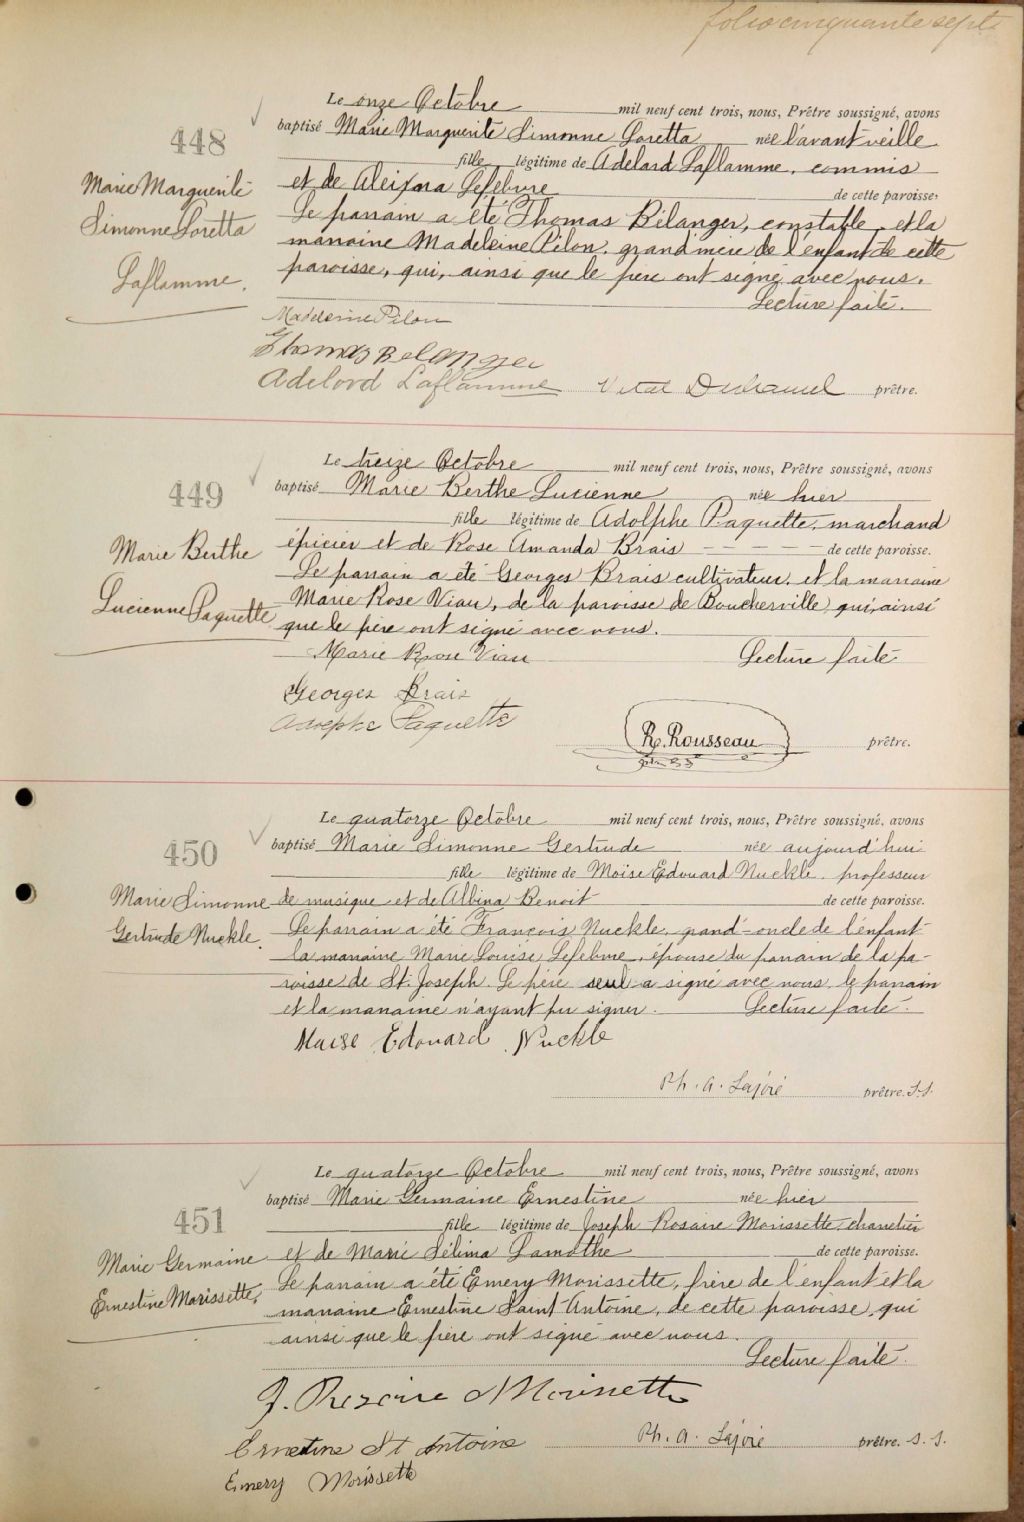 folio cinquante sept
Le onze Octobre mil neuf cent trois, nous, Prêtre soussigné, avons
448
baptisé Marie Marguerite Simonne Loretta née l'avant veille
fille légitime de Adelard Laflamme, commis
Marie Marguerite
et de Alexina Lefebvre de cette paroisse.
Simonne Loretta
Le parrain a été Thomas Bélanger, constable, et la
marraine Madeleine Pilon, grand'mère de l'enfant de cette
Laflamme.
paroisse, qui, ainsi que le père ont signé avec nous.
Lecture faite.
Madeleine Pilon
Thomas Belanger
Adelord Laflamme Vital Duhamel prêtre.
Le treize Octobre mil neuf cent trois, nous, Prêtre soussigné, avons
449
baptisé Marie Berthe Lucienne née hier
fille légitime de Adolphe Paquette, marchand
Marie Berthe
épicier et de Rose Amanda Brais - - - - - de cette paroisse.
Le parrain a été Georges Brais cultivateur, et la marraine
Lucienne Paquette
Marie Rose Viau, de la paroisse de Boucherville, qui, ainsi
que le père ont signé avec nous.
Marie Rose Viau Lecture faite
Georges Brais
Adolphe Paquette
R. Rousseau prêtre.
Le quatorze Octobre mil neuf cent trois, nous, Prêtre soussigné, avons
450
baptisé Marie Simonne Gertrude née aujourd'hui
fille légitime de Moise Edouard Nuckle, professeur
Marie Simonne
de musique et de Albina Benoit de cette paroisse.
Gertrude Nuckle.
Le parrain a été François Nuckle, grand-oncle de l'enfant
la marraine Marie Louise Lefebvre, épouse du parrain de la pa-
roisse de St. Joseph. Le père seul a signé avec nous, le parrain
et la marraine n'ayant pu signer. Lecture faite.
Moise Edouard Nuckle
Ph. A. Lajoie prêtre. S.S.
Le quatorze Octobre mil neuf cent trois, nous, Prêtre soussigné, avons
451
baptisé Marie Germaine Ernestine née hier
fille légitime de Joseph Rosaire Morissette, charretier
Marie Germaine
et de Marie Sélima Lamothe de cette paroisse.
Ernestine Morissette.
Le parrain a été Emery Morissette, frère de l'enfant et la
marraine Ernestine Saint-Antoine, de cette paroisse, qui
ainsi que le père ont signé avec nous.
Lecture faite.
J. Rozaire Morissette
Ernestine St Antoine Ph. A. Lajoie prêtre. S. S.
Emery Morissette